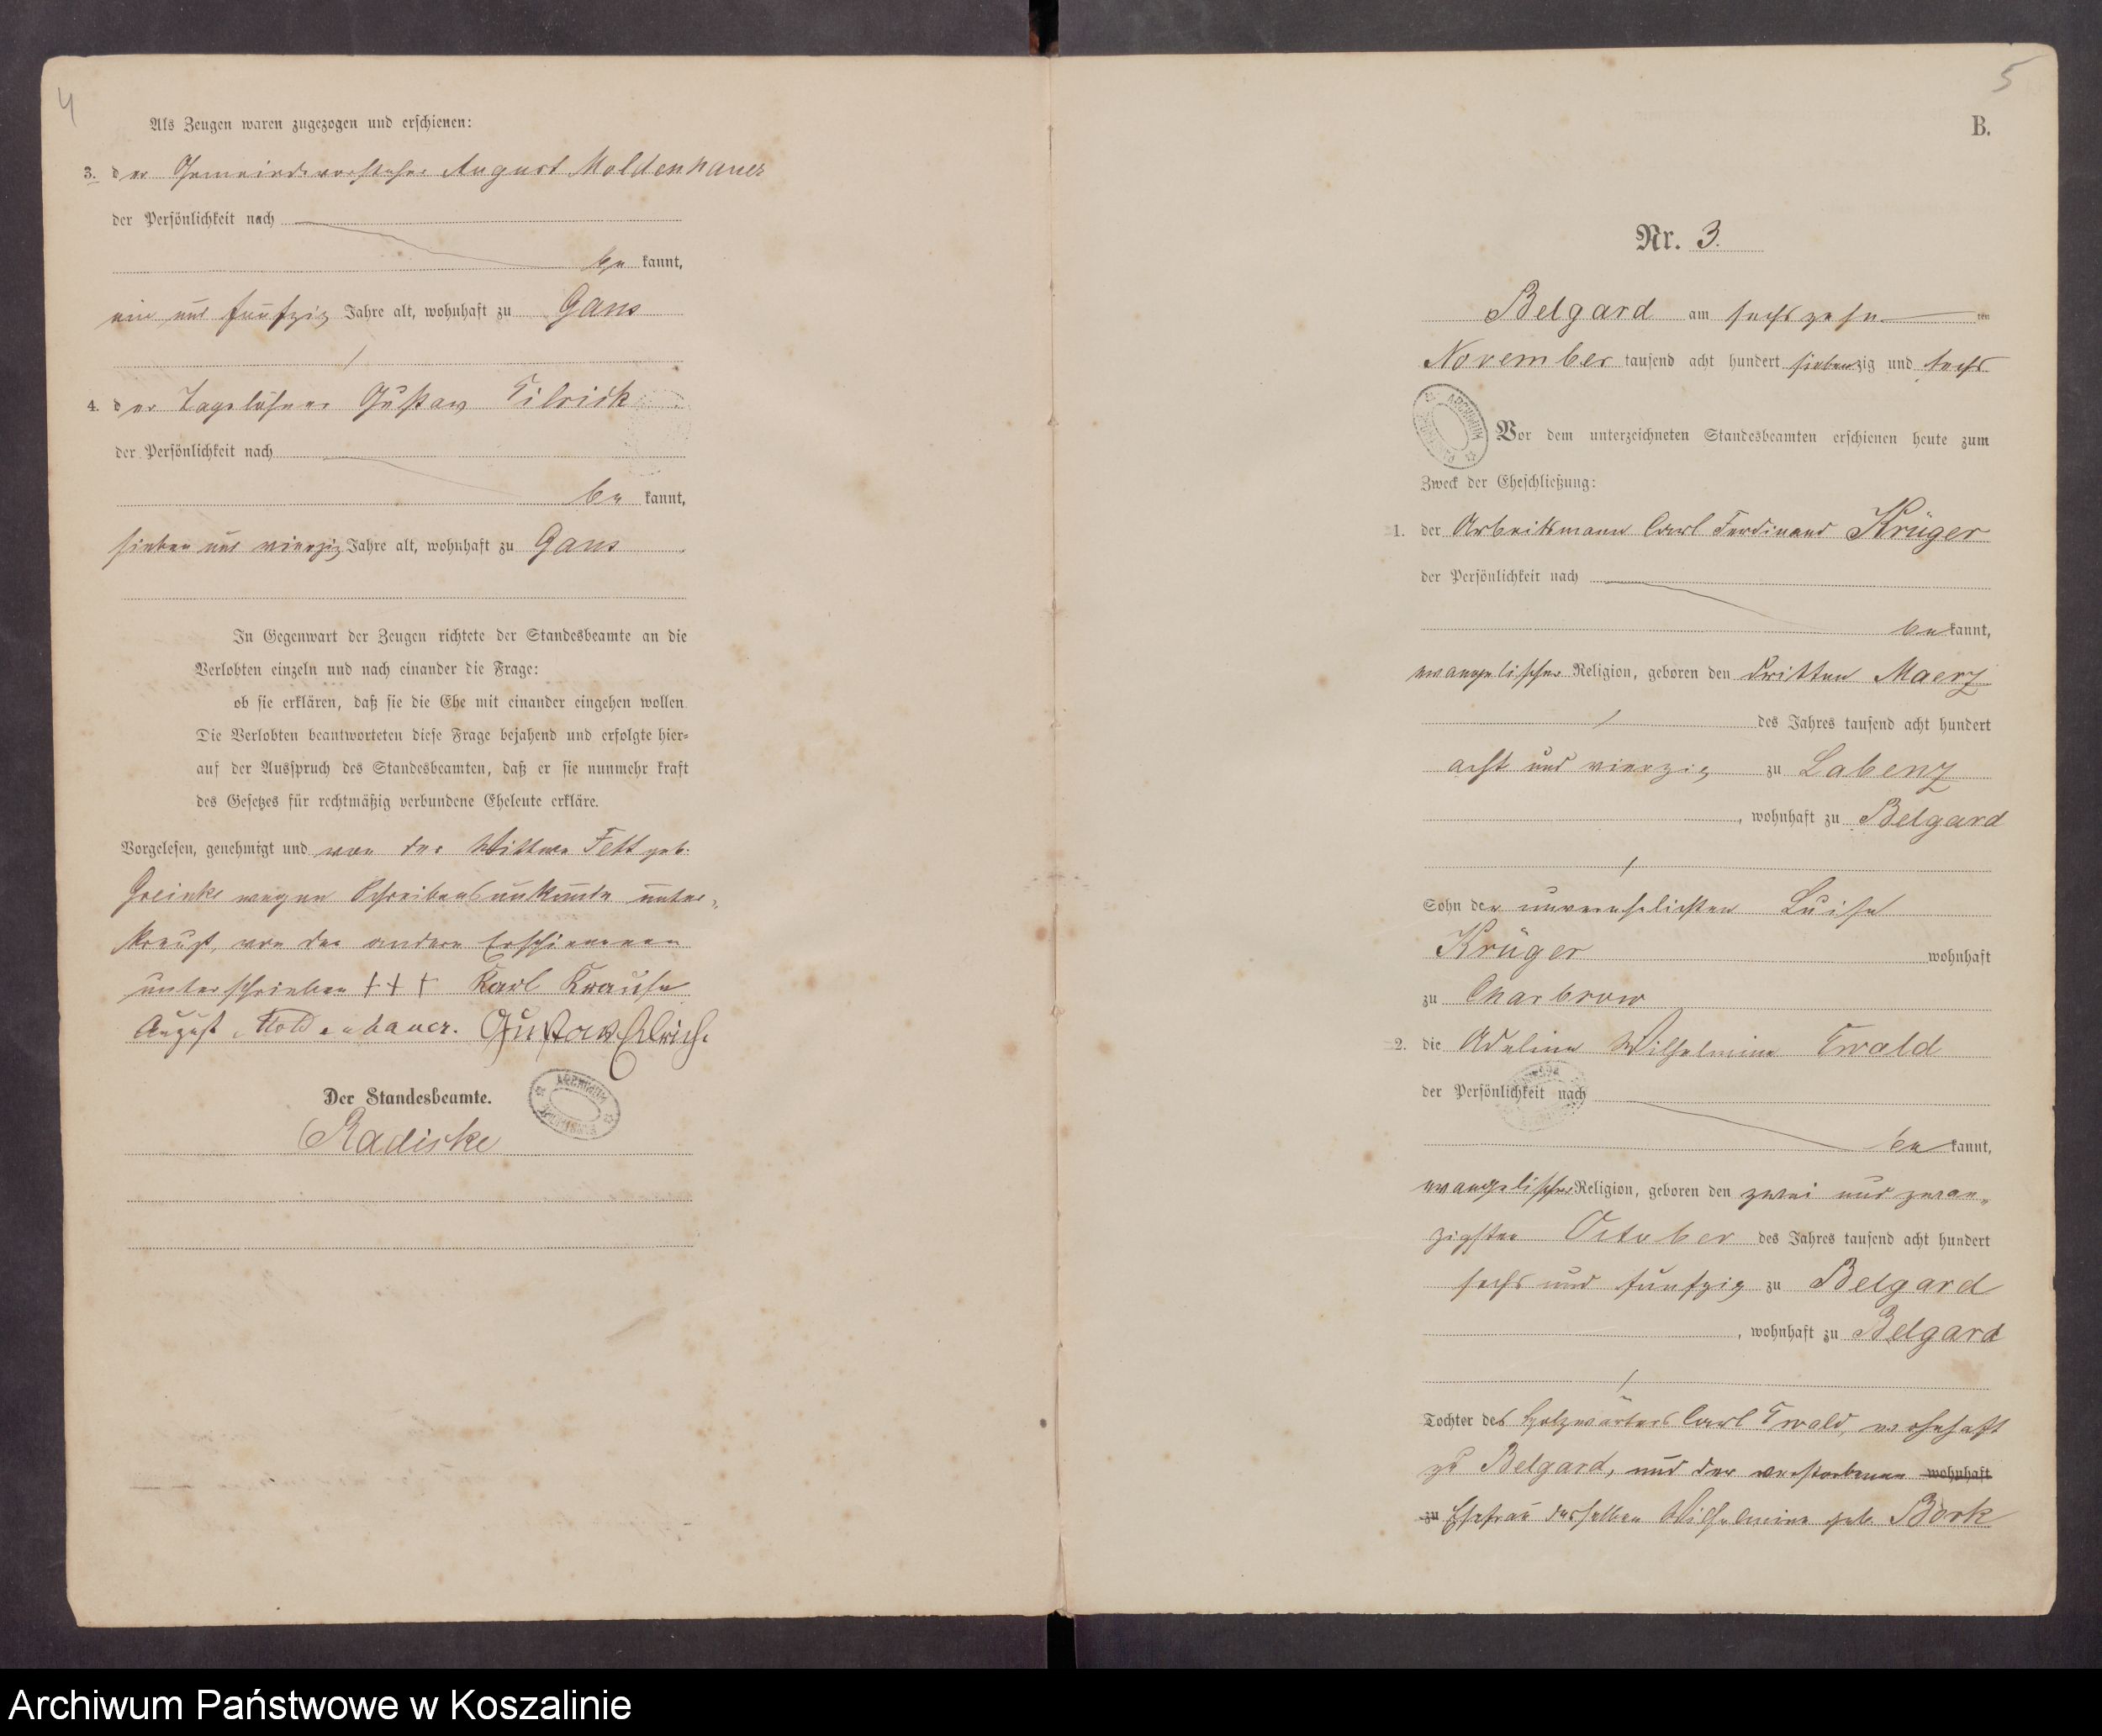 4
Als Zeugen waren zugezogen und erschienen:
3. der Gemeindevorsteher August Moldenhauer
der Persönlichkeit nach
be kannt,
ein und fünfzig Jahre alt, wohnhaft zu Gans
4. der Tagelöhner Gustav Eilrich
der Persönlichkeit nach
be kannt,
sieben und vierzig Jahre alt, wohnhaft zu Gans
In Gegenwart der Zeugen richtete der Standesbeamte an die
Verlobten einzeln und nach einander die Frage:
ob sie erklären, daß sie die Ehe mit einander eingehen wollen.
Die Verlobten beantworteten diese Frage bejahend und erfolgte hier-
auf der Ausspruch des Standesbeamten, daß er sie nunmehr kraft
des Gesetzes für rechtmäßig verbundene Eheleute erkläre.
Vorgelesen, genehmigt und von der Wittwe Fett geb.
wegen Schreibensunkunde unter-
kreuzt, von den andern Erschienenen
unterschrieben +++ Karl Krause
August Moldenhauer. Gustav Eilrich.
Der Standesbeamte.
Radiske
ARCHIWUM
5
B.
Nr. 3.
Belgard am sechszehn ten
November tausend acht hundert siebenzig und sechs
ARCHIWUM
Vor dem unterzeichneten Standesbeamten erschienen heute zum
Zweck der Eheschließung:
1. der Arbeitsmann Carl Ferdinand Krüger
der Persönlichkeit nach
be kannt,
evangelischer Religion, geboren den dritten Maerz
des Jahres tausend acht hundert
acht und vierzig zu Labenz
, wohnhaft zu Belgard
Sohn der unverehelichten Luise
Krüger wohnhaft
zu Charbrow
2. die Adeline Wilhelmine Ewald
der Persönlichkeit nach
be kannt,
evangelischer Religion, geboren den zwei und zwan-
zigsten October des Jahres tausend acht hundert
sechs und fünfzig zu Belgard
, wohnhaft zu Belgard
Tochter des Holzwärters Carl Ewald, wohnhaft
zu Belgard, und der verstorbenen wohnhaft
zu Ehefrau desselben Wilhelmine geb. Bork
Archiwum Państwowe w Koszalinie